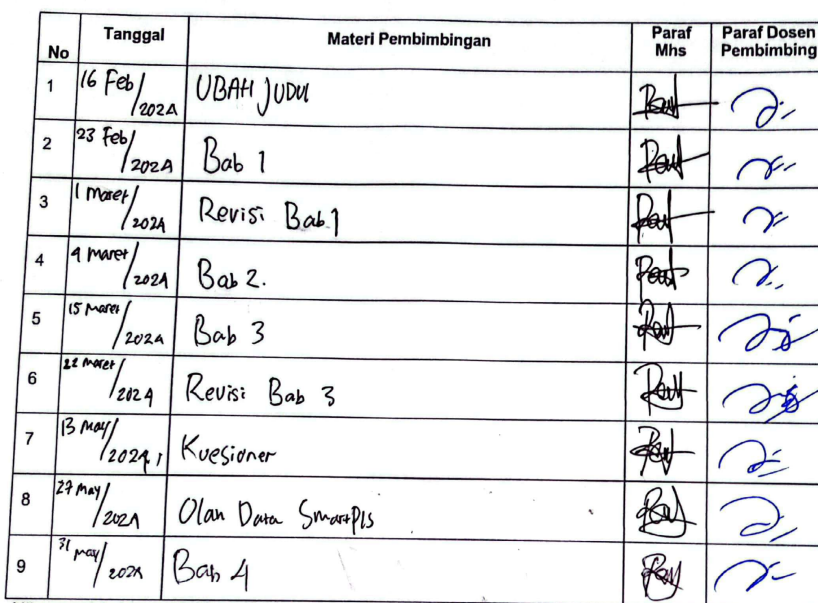 No Tanggal Materi Pembimbingan Paraf Mhs Paraf Dosen Pembimbing
1 16 Feb/2024 UBAH JUDUL
2 23 Feb/2024 Bab 1
3 1 Maret/2024 Revisi Bab 1
4 9 Maret/2024 Bab 2.
5 15 Maret/2024 Bab 3
6 22 Maret/2024 Revisi Bab 3
7 13 May/2024 Kuesioner
8 27 May/2024 Olah Data SmartPls
9 31 May/2024 Bab 4